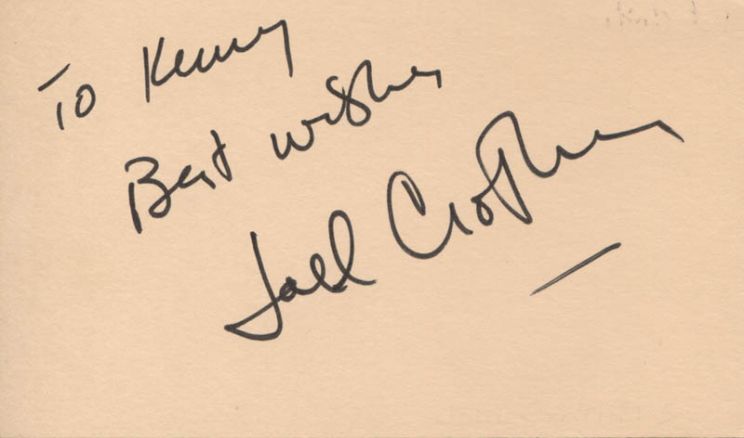 To Kenny
Best wishes
Joel Crothers